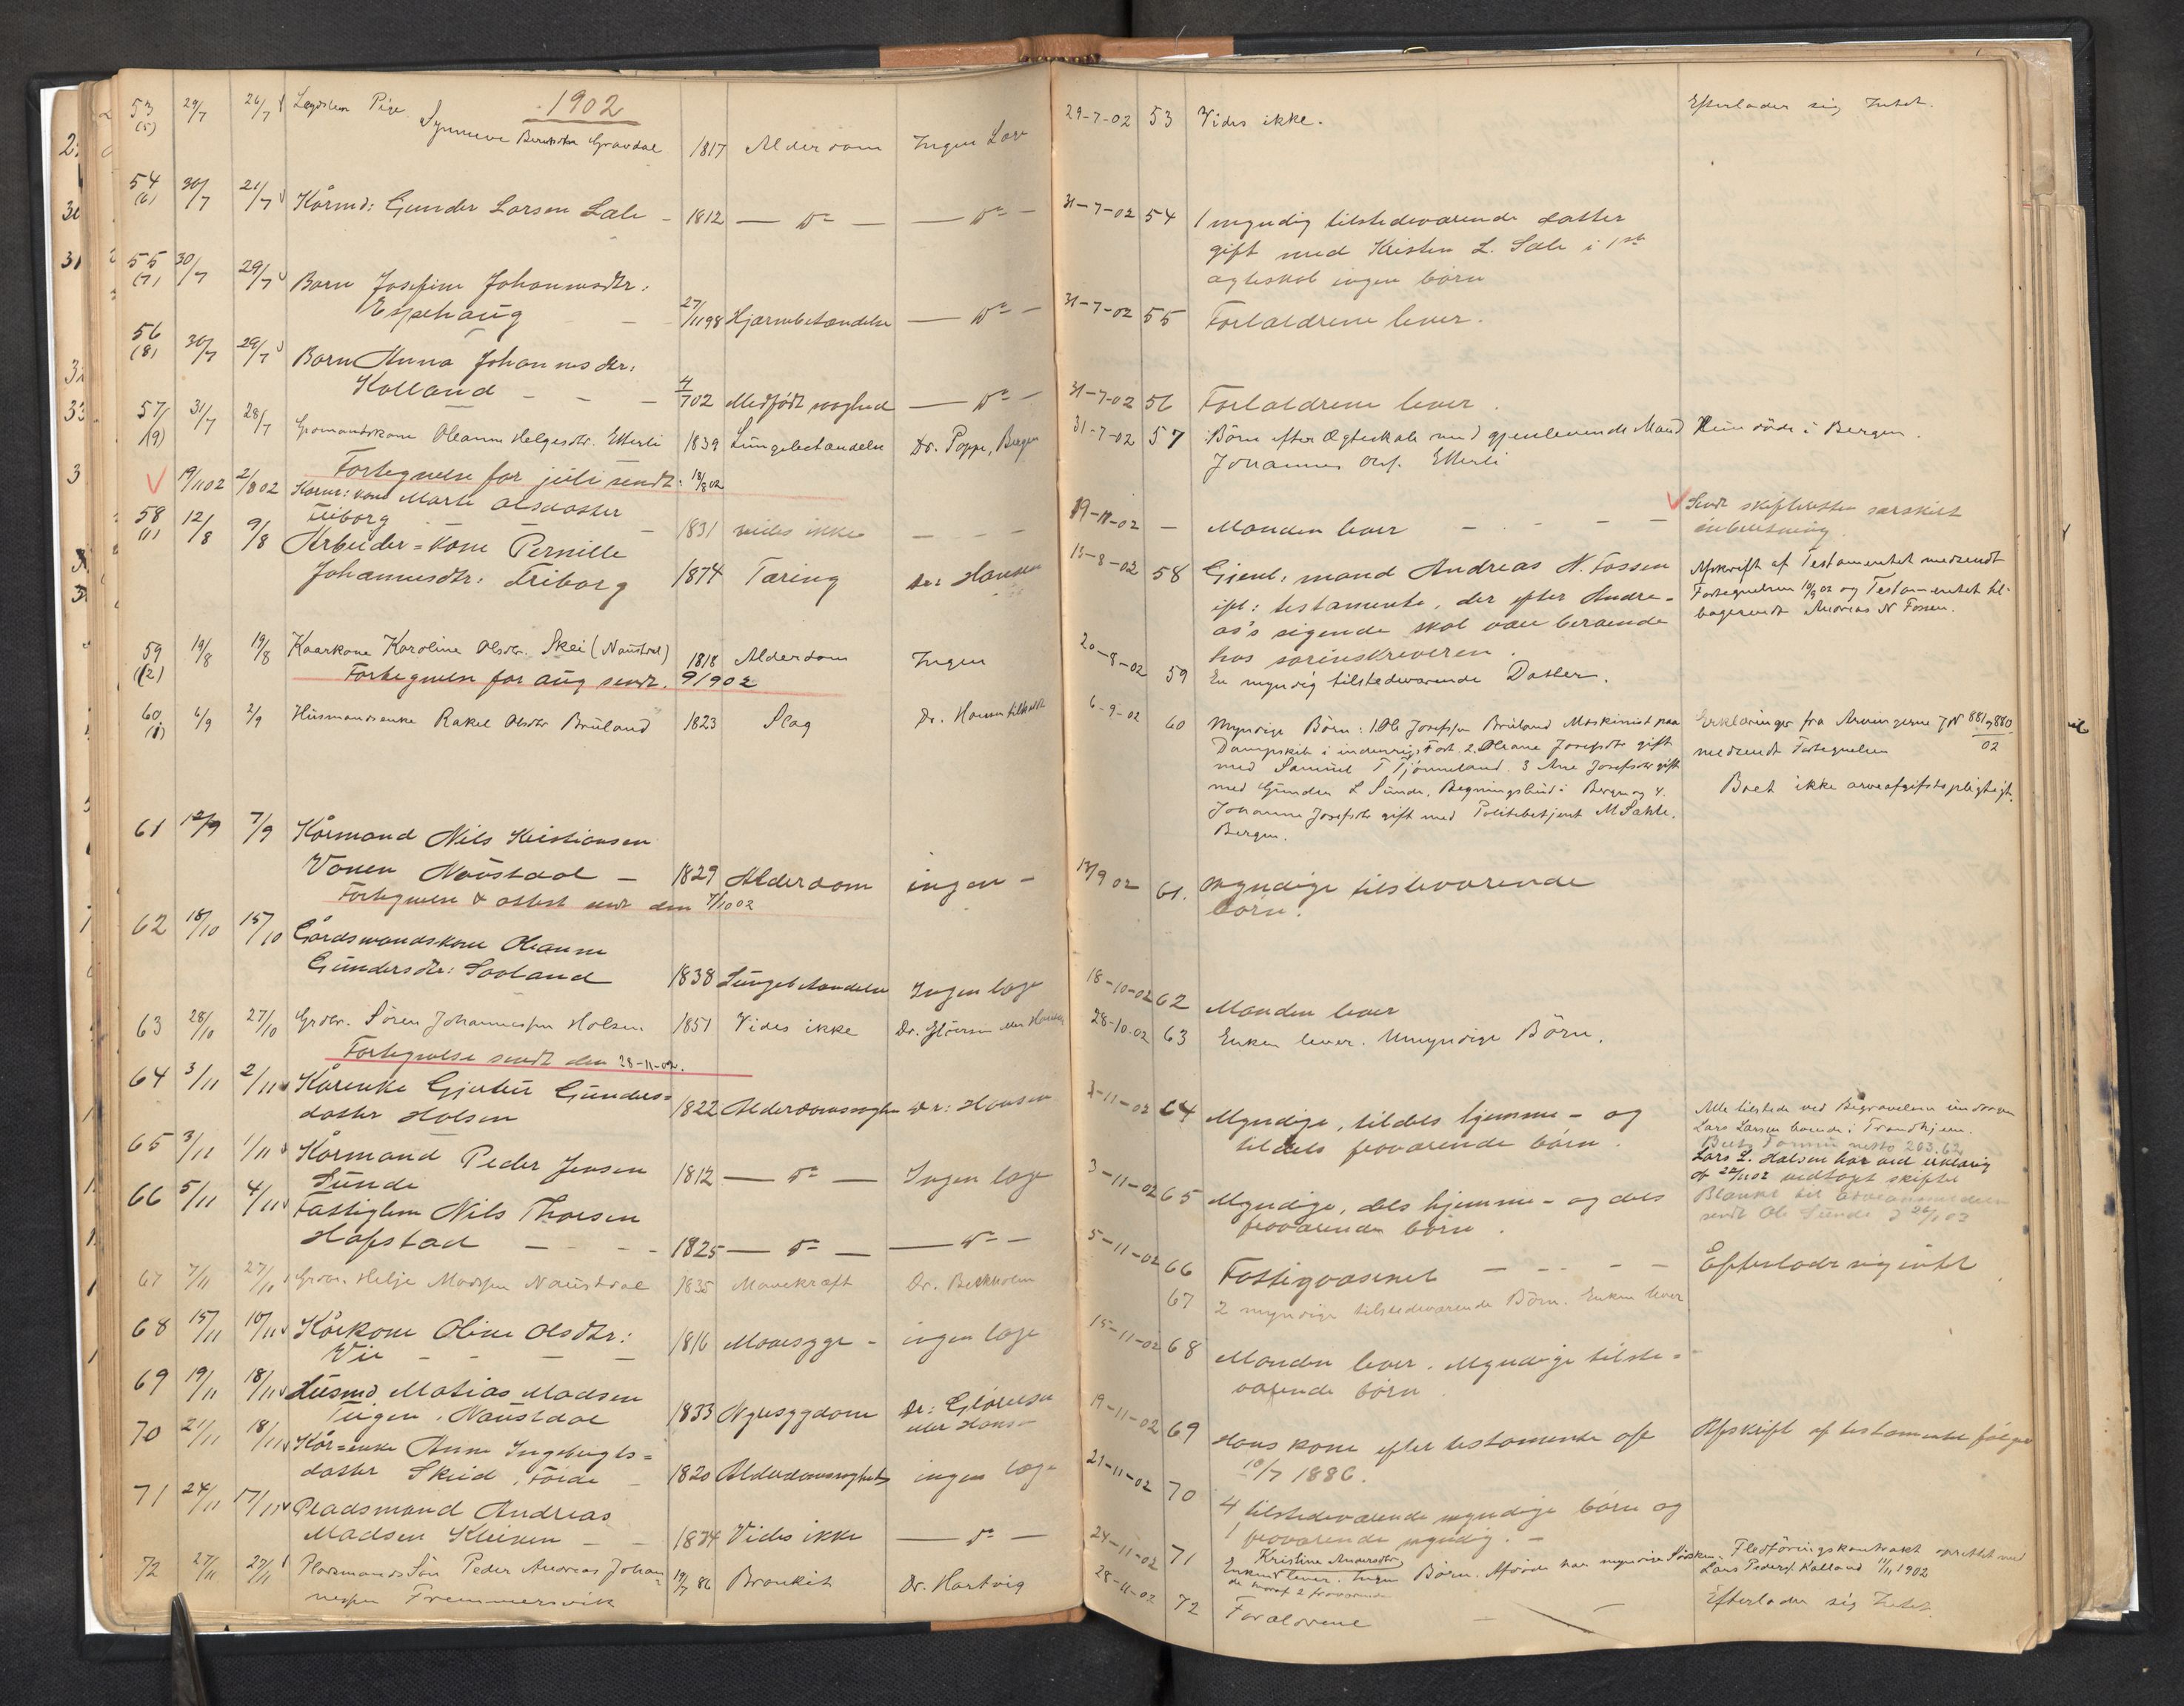 1902
53 29/7 26/7 Lægdslem Pige
(5) Synneve Gravdal 1817 Alderdom Ingen Læge
54 30/7 21/7 Kårmd: Gunder Larsen Sæle - 1812 — Do — — Do —
(6)
55 30/7 29/7 Barn Josefine Johannesdtr:
(7) Espehaug - - 27/11 98 Hjærnebetændelse — Do —
56 30/7 29/7 Barn Anna Johannesdtr:
(8) Kalland - - - 4/7 02 Medfødt svaghed — Do —
57 31/7 28/7 Grdmandskone Oleanne Helgesdtr. Etterli 1839 Lungebetændelse Dr. Poppe, Bergen
(9)
Fortegnelse for juli sendt: 18/8 02
19/11 02 2/8 02 Kårm: kone Marte Olsdatter
Friborg - - 1831 vides ikke - - -
58 12/8 9/8 Arbeider = kone Pernille
(1) Johannesdtr: Friborg 1874 Tæring Dr: Hansen
59 19/8 19/8 Kaarkone Karoline Olsdtr. Skei (Naustdal) 1818 Alderdom Ingen
(2) Fortegnelse for aug sendt. 9/9 02
60 6/9 2/9 Husmandsenke Rakel Olsdtr Bruland 1823 Slag Dr. Hansen tilkaldt
(1)
61 12/9 7/9 Kårmand Nils Kristiansen
Vonen Naustdal - 1829 Alderdom ingen -
Fortegnelse & attest sendt den 7/10 02
62 18/10 15/10 Gårdsmandskone Oleanne
Gundersdtr: Savland 1838 Lungebetændelse Ingen læge
63 28/10 27/10 Grdbr. Sören Johannessen Holsen 1851 Vides ikke Dr. Glörsen eller Hansen
Fortegnelse sendt den 28-11-02.
64 3/11 2/11 Kårenke Gjertru Gunders=
datter Holsen 1822 Alderdomssvaghed Dr: Hansen
65 3/11 1/11 Kårmand Peder Jensen
Sunde 1812 — Do — Ingen læge
66 5/11 4/11 Fattiglem Nils Thorsen
Hafstad - - - 1825 — Do — — Do —
67 7/11 27/10 Grdbr. Helje Madssen Naustdal 1835 Mavekræft Dr. Berkholm
68 15/11 10/11 Kårkone Oline Olsdtr:
Vie - - - - 1816 Mavesyge - ingen læge
69 19/11 18/11 Husmd Matias Madsen
Teigen, Naustdal 1833 Nyresygdom Dr: Glörsen
eller Hansen
70 21/11 18/11 Kår=enke Anne Ingebrigts=
datter Skeid, Förde - 1820 Alderdomssvaghed ingen læge
71 24/11 17/11 Pladsmand Andreas
Madsen Kleiven - - 1834 Vides ikke — Do —
72 27/11 27/11 Pladsmands Sön Peder Andreas Johan=
nessen Fremmersvik 19/7 86 Bronkit Dr. Hartvig
29-7-02 53 Vides ikke. Efterlader sig Intet.
31-7-02 54 1 myndig tilstedeværende datter
gift med Kristen L. Sæle i 1ste
ægteskab ingen børn
31-7-02 55 Forældrene lever.
31-7-02 56 Forældrene lever.
31-7-02 57 Börn efter Ægteskab med gjenlevende Mand Hun döde i Bergen.
Johannes Etterli
19-11-02 - Manden lever - - - - Sendt skifteretten særskilt
indberetning.
13-8-02 58 Gjenl: mand Andreas N. Fossen Afskrift af Testamentet medsendt
ifl: testamente, der efter Andre- Fortegnelsen 10/9 02 og Testamentet til-
as's sigende skal være beroende bagesendt Andreas N Fossen.
hos sorenskriveren.
20-8-02 59 En myndig tilstedeværende Datter.
6-9-02 60 Myndige Börn: 1. Ole Josefssen Bruland Maskinist paa Erklæringer fra Arvingerne J N 881 & 880
Dampskib i indenrigs Fart. 2. Oleane Josefsdtr gift medsendt Fortegnelsen 02
med Samuel T Tjönneland. 3 Ane Josefsdtr gift
med Gunder L Sunde, Bygningsbud i Bergen og 4. Boet ikke arveafgiftspligtigt.
Johanne Josefsdtr gift med Politibetjent M Sæhle,
Bergen.
12/9 02 61. Myndige tilstedeværende
børn.
18-10-02 62 Manden lever
28-10-02 63 Enken lever. Umyndige Börn.
3-11-02 64 Myndige, tildels hjemme- og Alle tilstede ved Begravelsen undtagen
tildels fraværende børn. Lars Larsen boende i Trondhjem.
Boets Formue netto 203.62
Lars L. Holsen har ved erklæring
af 22/11 02 vedtaget skiftet
3-11-02 65 Myndige, dels hjemme- og dels Blanket til arveanmeldelse
fraværende børn. sendt Ole Sunde d 26/1 03
5-11-02 66 Fattigvæsenet - - - - - Efterlader sig intet
67 2 myndige tilstedeværende Börn. Enken lever
15-11-02 68 Manden lever. Myndige tilste-
værende børn.
19-11-02 69 Hans kone efter testamente af Afskrift af testamente følger
10/7 1886.
21-11-02 70 4 tilstedeværende myndige børn og
1 fraværende myndig. -
24-11-02 71 Kristine Andersdtr
Enken lever. Ingen Börn. Afdøde har myndige Søsken Flodföringskontrakt oprettet med
de hvoraf 2 fraværende Lars Peders. Kalland 11/11 1902
28-11-02 72 Forældrene - - Efterlader sig Intet.